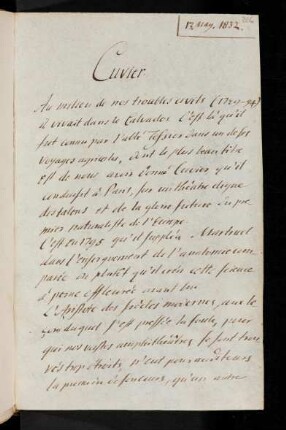 17 May, 1832.
Cuvier.
Au milieu de nos troubles civils (1791-94)
il vivait dans le Calvados. C'est là qu'il
fut connu par l'abbé Tessier dans un de ses
voyages agricoles, dont le plus beau
est de nous avoir donné Cuvier, qu'il
conduisit à Paris, seul théâtre digne
des talens et de la gloire future du pre
mier naturaliste de l'Europe.
C'est en 1795 qu'il suppléa
dans l'enseignement de l'anatomie com
parée ou plutôt qu'il créa cette science
à peine effleurée avant lui
L'Aristote des siècles modernes, sur le
quel s'est pressée la foule, pour
qui nos vastes amphithéâtres se sont trou
vés trop étroits, n'eut pour auditeurs
la première fois qu'un autre